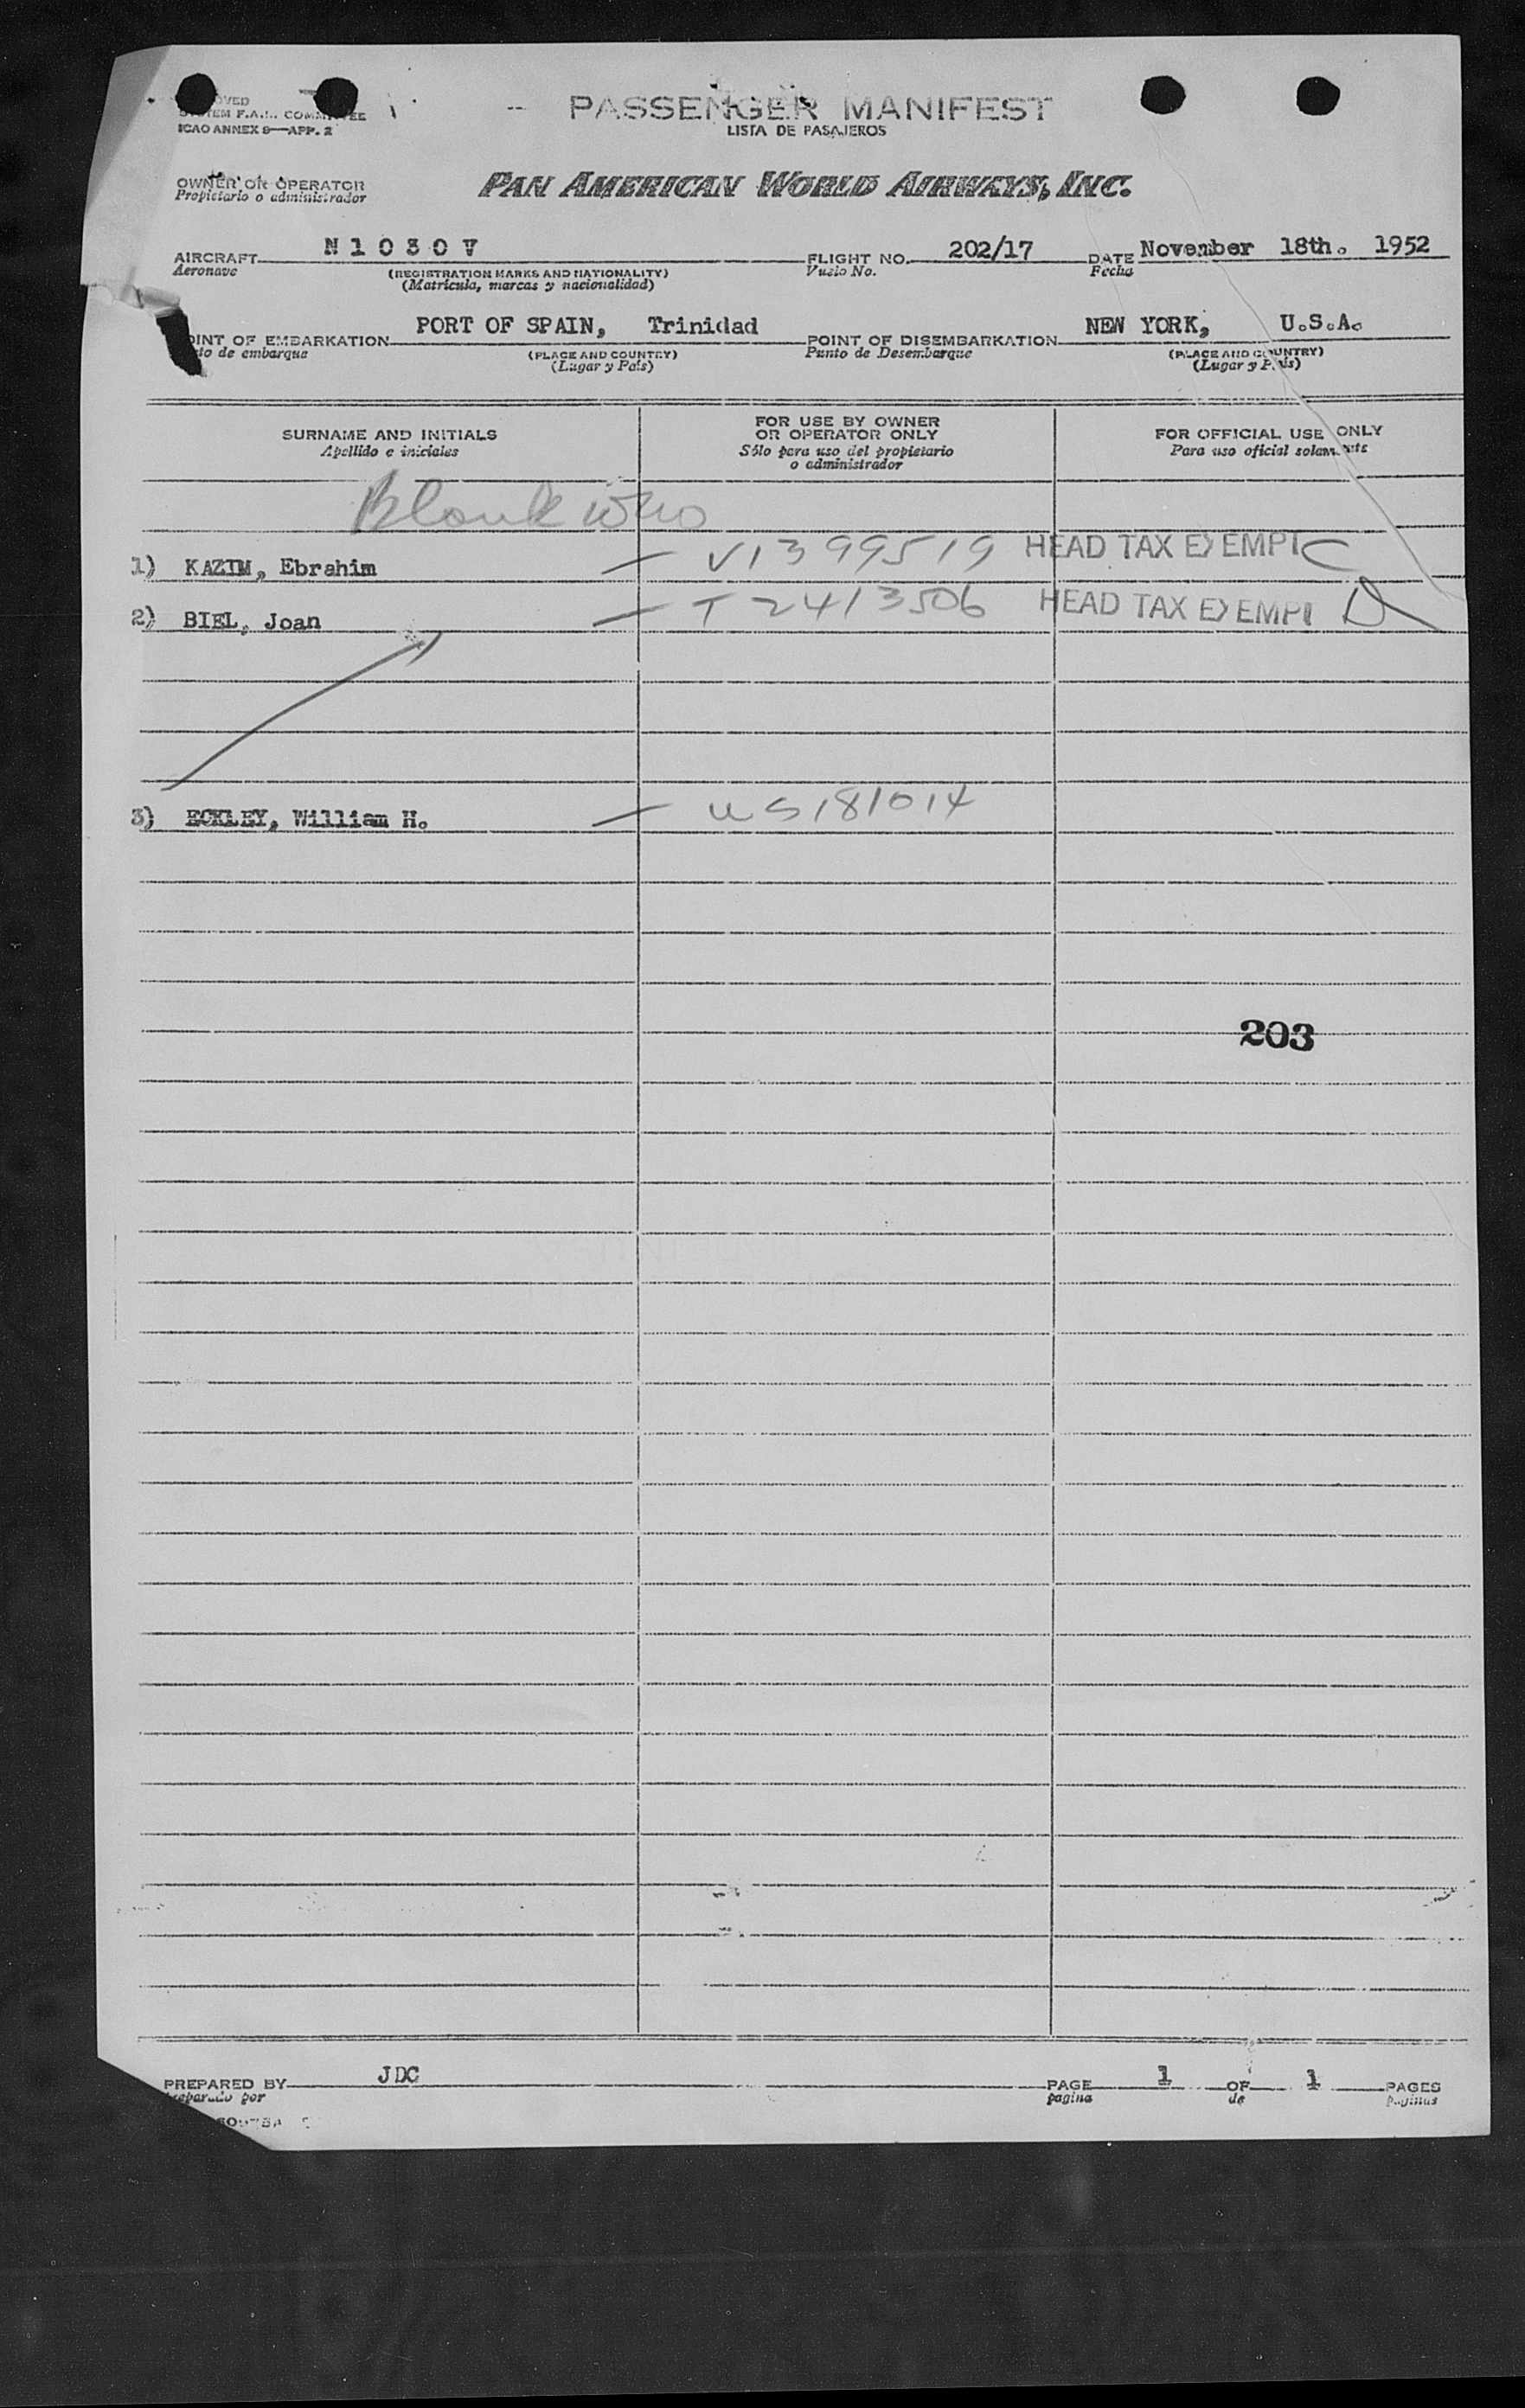 PASSENGER MANIFEST
LISTA DE PASAJEROS
ICAO ANNEX 9—APP. 2
OWNER OR OPERATOR
Propietario o administrador
PAN AMERICAN WORLD AIRWAYS, INC.
AIRCRAFT N 1 0 3 0 V FLIGHT NO. 202/17 DATE November 18th. 1952
Aeronave (REGISTRATION MARKS AND NATIONALITY) Vuelo No. Fecha
(Matricula, marcas y nacionalidad)
POINT OF EMBARKATION PORT OF SPAIN, Trinidad POINT OF DISEMBARKATION NEW YORK, U.S.A.
de embarque (PLACE AND COUNTRY) Punto de Desembarque (PLACE AND COUNTRY)
(Lugar y País) (Lugar y País)
SURNAME AND INITIALS FOR USE BY OWNER OR OPERATOR ONLY FOR OFFICIAL USE ONLY
Apellido e iniciales Sólo para uso del propietario o administrador Para uso oficial solamente
1) KAZIM, Ebrahim — V1399519 HEAD TAX EXEMPT C
2) BIEL, Joan — T 2413506 HEAD TAX EXEMPT D
3) ECKLEY, William H. — US181014
203
PREPARED BY JDC PAGE 1 OF 1 PAGES
por pagina de paginas